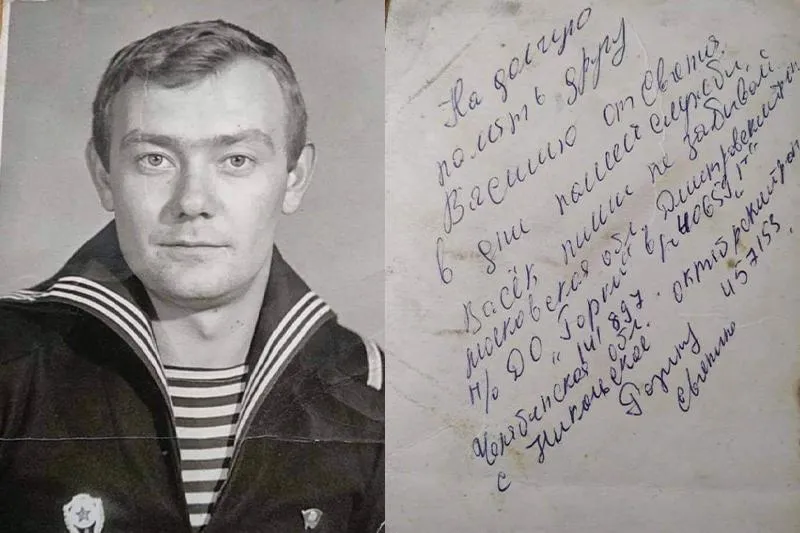 На долгую
память другу
Василию от Евгения
в дни нашей службы.
Васёк пиши не забывай
московская обл. Дмитровский рон
п/о ДО "Горки" в/ч 40659 "Г"
141897.
Челябинская обл. октябрьский рон
с Никольское. 457153
Евгению